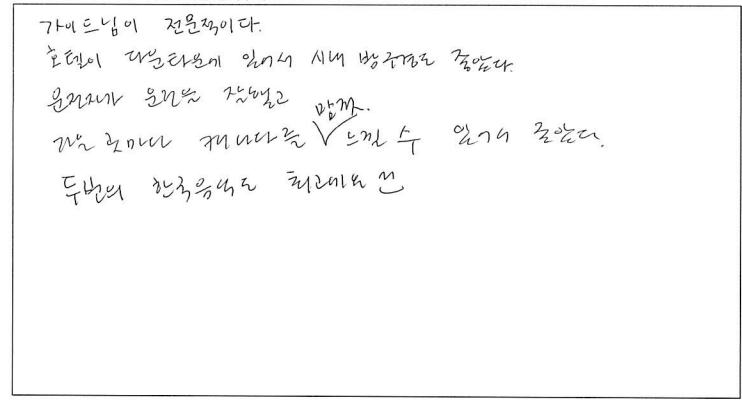 가이드님이 전문적이다.
호텔이 다운타운에 있어서 시내 밤구경도 좋았다.
운전자가 운전을 잘했고
가는 곳마다 캐나다를 맘껏 느낄 수 있거서 좋았다.
두번의 한국음식도 최고예요